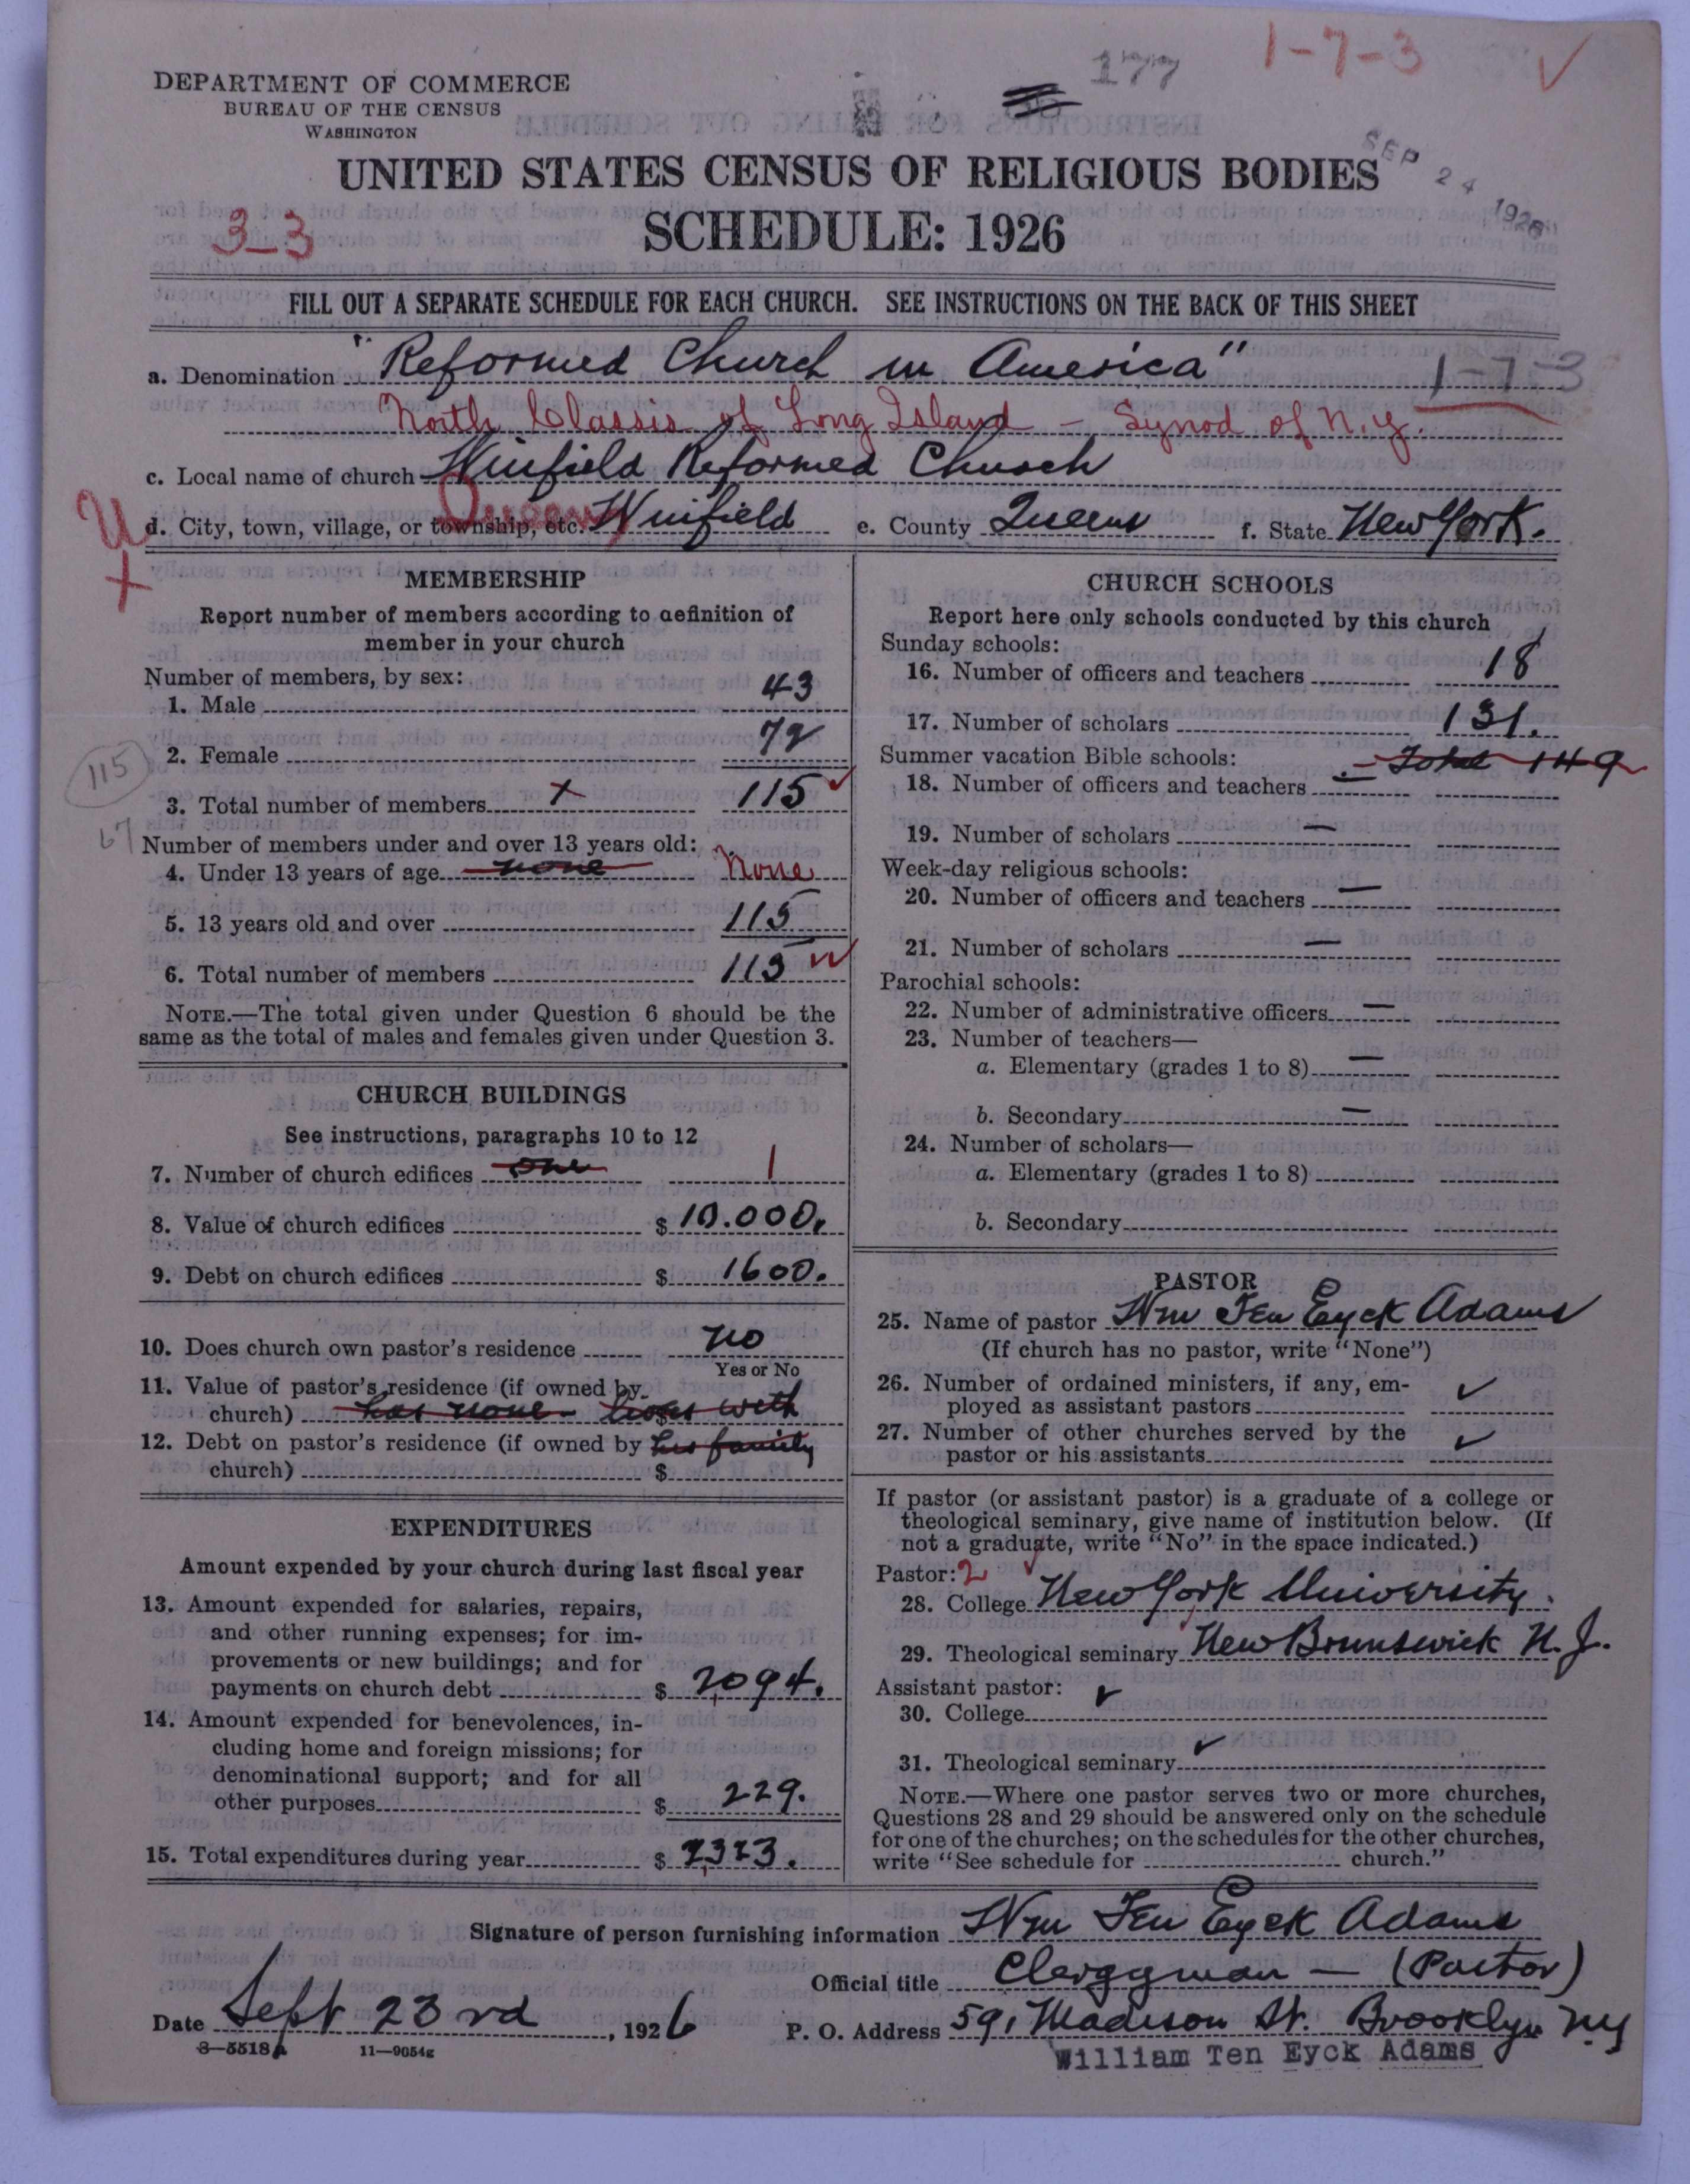 177
1-7-3
DEPARTMENT OF COMMERCE
BUREAU OF THE CENSUS
WASHINGTON
SEP 24 1926
UNITED STATES CENSUS OF RELIGIOUS BODIES
3-3
SCHEDULE: 1926
FILL OUT A SEPARATE SCHEDULE FOR EACH CHURCH. SEE INSTRUCTIONS ON THE BACK OF THIS SHEET
a. Denomination "Reformed Church in America" 1-7-3
North Classis of Long Island - Synod of N.Y.
c. Local name of church Winfield Reformed Church
d. City, town, village, or township, etc. Winfield e. County Queens f. State New York.
MEMBERSHIP
Report number of members according to definition of
member in your church
Number of members, by sex:
1. Male 43
2. Female 72
115
3. Total number of members x 115
67
Number of members under and over 13 years old:
4. Under 13 years of age none None
5. 13 years old and over 115
6. Total number of members 115
NOTE.—The total given under Question 6 should be the
same as the total of males and females given under Question 3.
CHURCH BUILDINGS
See instructions, paragraphs 10 to 12
7. Number of church edifices one 1
8. Value of church edifices $ 10.000.
9. Debt on church edifices $ 1600.
10. Does church own pastor's residence no
Yes or No
11. Value of pastor's residence (if owned by
church) has none - lives with
12. Debt on pastor's residence (if owned by his family
church) $
EXPENDITURES
Amount expended by your church during last fiscal year
13. Amount expended for salaries, repairs,
and other running expenses; for im-
provements or new buildings; and for
payments on church debt $ 2094.
14. Amount expended for benevolences, in-
cluding home and foreign missions; for
denominational support; and for all
other purposes $ 229.
15. Total expenditures during year $ 2323.
CHURCH SCHOOLS
Report here only schools conducted by this church
Sunday schools:
16. Number of officers and teachers 18
17. Number of scholars 131.
Summer vacation Bible schools: - Total 149
18. Number of officers and teachers —
19. Number of scholars —
Week-day religious schools:
20. Number of officers and teachers —
21. Number of scholars —
Parochial schools:
22. Number of administrative officers —
23. Number of teachers—
a. Elementary (grades 1 to 8) —
b. Secondary —
24. Number of scholars—
a. Elementary (grades 1 to 8)
b. Secondary
PASTOR
25. Name of pastor Wm Ten Eyck Adams
(If church has no pastor, write "None")
26. Number of ordained ministers, if any, em-
ployed as assistant pastors ✓
27. Number of other churches served by the
pastor or his assistants ✓
If pastor (or assistant pastor) is a graduate of a college or
theological seminary, give name of institution below. (If
not a graduate, write "No" in the space indicated.)
Pastor: 2
28. College New York University.
29. Theological seminary New Brunswick N.J.
Assistant pastor: ✓
30. College
31. Theological seminary ✓
NOTE.—Where one pastor serves two or more churches,
Questions 28 and 29 should be answered only on the schedule
for one of the churches; on the schedules for the other churches,
write "See schedule for church."
Signature of person furnishing information Wm Ten Eyck Adams
Official title Clergyman — (Pastor)
Date Sept 23rd, 1926 P. O. Address 591 Madison St. Brooklyn NY
8-5518A 11-9054g
William Ten Eyck Adams